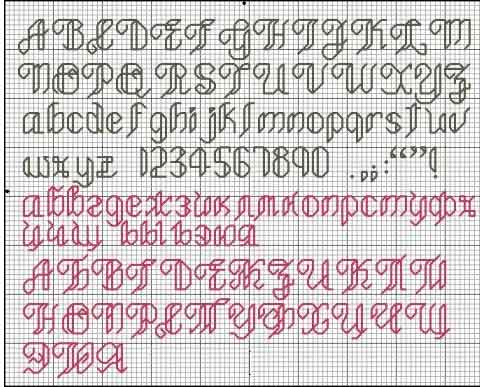 A B C D E F G H I J K L M
N O P Q R S T U V W X Y Z
a b c d e f g h i j k l m n o p q r s t u v
w x y z 1 2 3 4 5 6 7 8 9 0 . , ; : “ ” !
а б в г д е ж з и к л м н о п р с т у ф х
ц ч щ ъ ы ь э ю я
А Б В Г Д Е Ж З И К Л М
Н О П Р С Т У Ф Х Ц Ч Щ
Э Ю Я